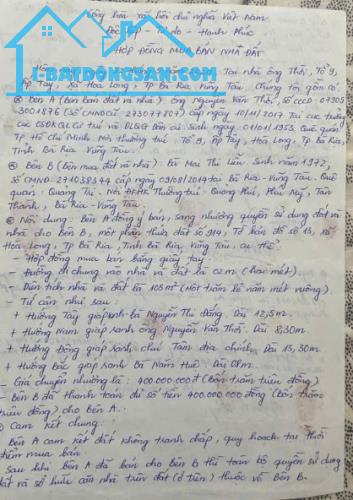 Cộng hòa xã hội chủ nghĩa Việt Nam
Độc lập - Tự do - Hạnh Phúc
I-BATDONGSAN.COM
HỢP ĐỒNG MUA BÁN NHÀ ĐẤT
Hôm Tại nhà ông Thới, Tổ 9,
Ấp Tây, Xã Hòa Long, Tp Bà Rịa Vũng Tàu. Chúng tôi gồm có:
Bên A (Bên bán đất và nhà): Ông Nguyễn Văn Thới, Số CCCD: 07305
3001876 (Số CMNDCũ: 273077807) cấp ngày 10/11/2017 Tại cục trưởng
cục CSĐKQL Cư trú và DLQG Dân cư. Sinh ngày: 01/01/1953. Quê quán,
Tp Hồ Chí Minh. Nơi thường trú: Tổ 9, Ấp Tây, Hòa Long, Tp Bà Rịa,
Tỉnh Bà Rịa Vũng Tàu.
Bên B (Bên mua đất và nhà): Bà Mai Thị Liễu, Sinh năm 1972,
Số CMND: 271038344 cấp ngày 09/08/2014 tại Bà Rịa - Vũng Tàu. Quê
quán: Quảng Trị. Nơi ĐKHK Thường trú: Quảng Phú, Phước Mỹ, Tân
Thành, Bà Rịa - Vũng Tàu.
Nội dung: Bên A đồng ý bán, sang nhượng quyền sử dụng đất và
nhà cho Bên B, một phần thửa đất số 914, Tờ bản đồ số 13, xã
Hòa Long, Tp Bà Rịa, Tỉnh Bà Rịa, Vũng Tàu, cụ thể:
- Hợp đồng mua bán bằng giấy tay
- Đường đi chung vào nhà và đất là 02m (hai mét).
- Diện tích nhà và đất là 105m² (Một trăm lẻ năm mét vuông).
- Tứ cận như sau:
+ Hướng Tây giáp ranh bà Nguyễn Thu Đông. Dài 12,15m.
+ Hướng Nam giáp ranh ông Nguyễn Văn Thới. Dài 8,30m
+ Hướng Đông giáp ranh chú Tám địa chính. Dài 13,30m.
+ Hướng Bắc giáp ranh Bà Năm Huê. Dài 08m.
- Giá chuyển nhượng là: 400.000.000 đ (Bốn trăm triệu đồng)
Bên B đã thanh toán đủ số tiền 400.000.000 đồng (Bốn trăm
triệu đồng) cho Bên A.
Cam kết chung:
Bên A cam kết đất không tranh chấp, quy hoạch tại thời
điểm mua bán.
Sau khi Bên A đã bán cho Bên B thì toàn bộ quyền sử dụng
đất và sở hữu căn nhà trên đất thuộc về Bên B.